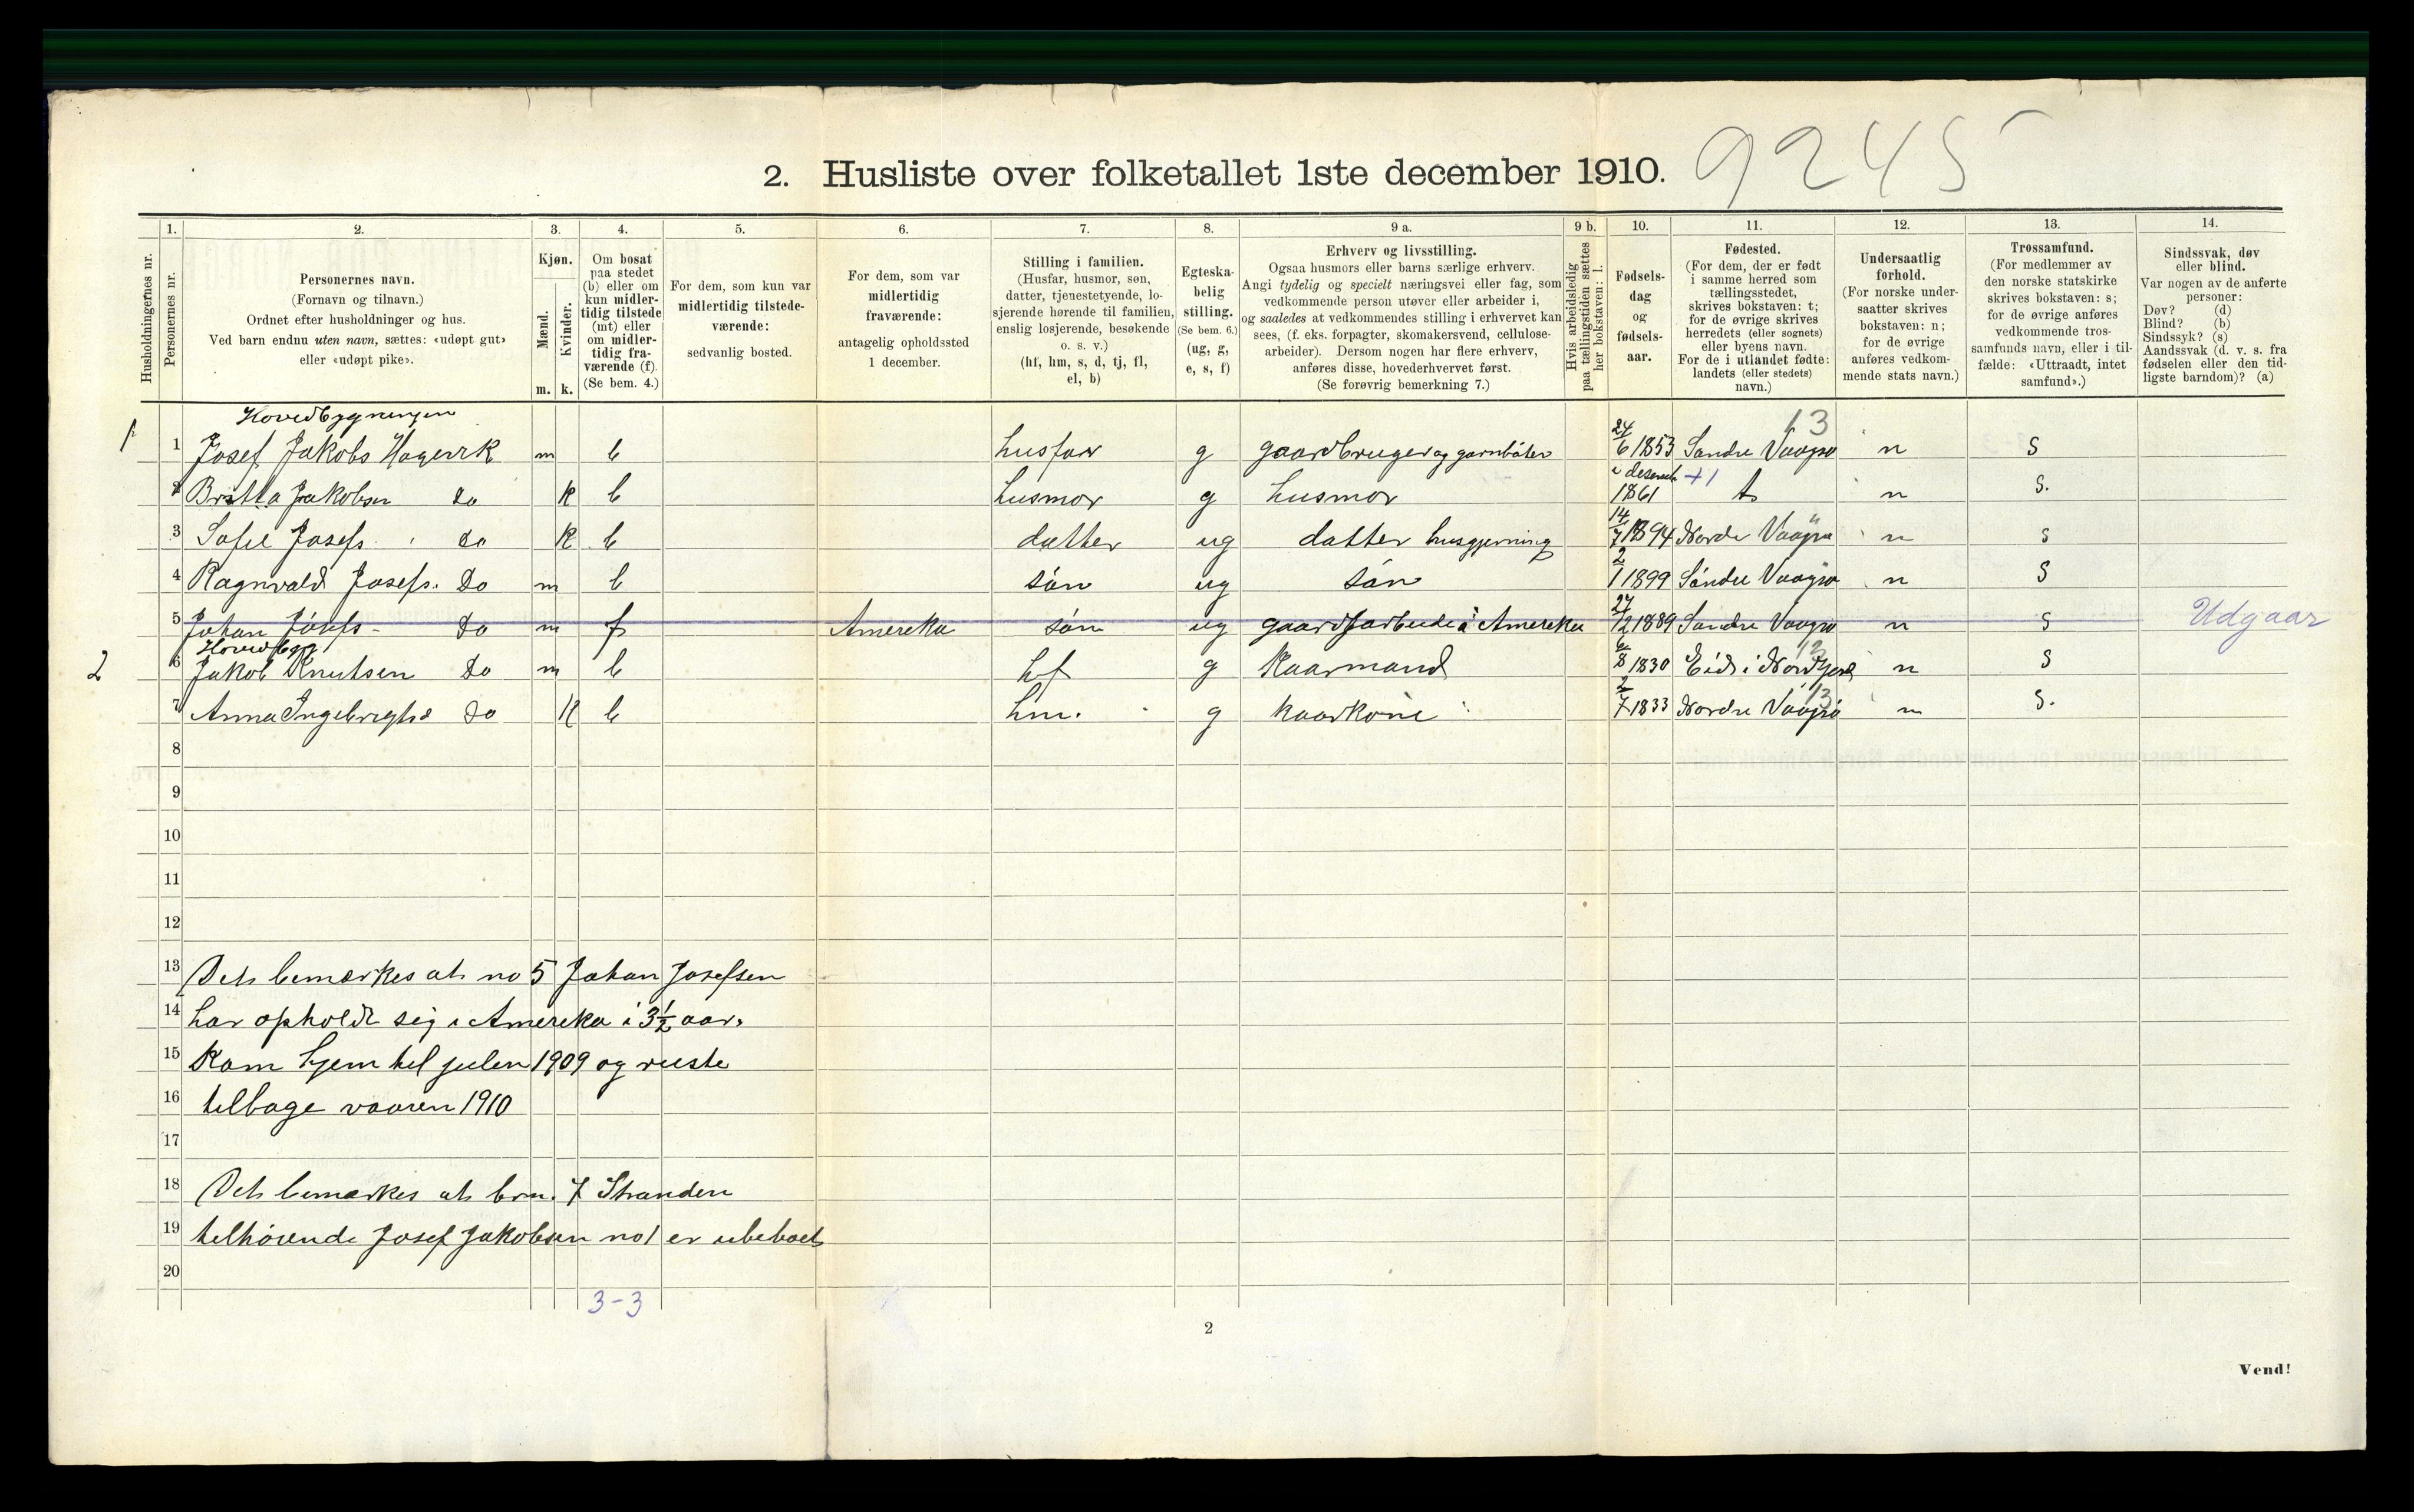 9245
2. Husliste over folketallet 1ste december 1910.
Husholdningernes nr.
1. Personernes nr.
2. Personernes navn. (Fornavn og tilnavn.) Ordnet efter husholdninger og hus. Ved barn endnu uten navn, sættes: «udøpt gut» eller «udøpt pike».
3. Kjøn. Mænd. m. Kvinder. k.
4. Om bosat paa stedet (b) eller om kun midlertidig tilstede (mt) eller om midlertidig fraværende (f). (Se bem. 4.)
5. For dem, som kun var midlertidig tilstedeværende: sedvanlig bosted.
6. For dem, som var midlertidig fraværende: antagelig opholdssted 1 december.
7. Stilling i familien. (Husfar, husmor, søn, datter, tjenestetyende, losjerende hørende til familien, enslig losjerende, besøkende o. s. v.) (hf, hm, s, d, tj, fl, el, b)
8. Egteskabelig stilling. (Se bem. 6.) (ug, g, e, s, f)
9 a. Erhverv og livsstilling. Ogsaa husmors eller barns særlige erhverv. Angi tydelig og specielt næringsvei eller fag, som vedkommende person utøver eller arbeider i, og saaledes at vedkommendes stilling i erhvervet kan sees, (f. eks. forpagter, skomakersvend, cellulosearbeider). Dersom nogen har flere erhverv, anføres disse, hovederhvervet først. (Se forøvrig bemerkning 7.)
9 b. Hvis arbeidsledig paa tællingstiden sættes her bokstaven: l.
10. Fødselsdag og fødselsaar.
11. Fødested. (For dem, der er født i samme herred som tællingsstedet, skrives bokstaven: t; for de øvrige skrives herredets (eller sognets) eller byens navn. For de i utlandet fødte: landets (eller stedets) navn.)
12. Undersaatlig forhold. (For norske undersaatter skrives bokstaven: n; for de øvrige anføres vedkommende stats navn.)
13. Trossamfund. (For medlemmer av den norske statskirke skrives bokstaven: s; for de øvrige anføres vedkommende trossamfunds navn, eller i tilfælde: «Uttraadt, intet samfund».)
14. Sindssvak, døv eller blind. Var nogen av de anførte personer: Døv? (d) Blind? (b) Sindssyk? (s) Aandssvak (d. v. s. fra fødselen eller den tidligste barndom)? (a)
Hovedbygningen 13
1 1 Josef Jakobs Hagevik m b husfar g gaardbruger og garnbåter 24/6 1853 Søndre Vaagsø n s
2 Britta Jakobsen do k b husmor g husmor i desemb 1861 +1 t n s.
3 Sofie Josefs do k b datter ug datter husgjerning 14/7 1894 Nordre Vaagsø n s
4 Ragnvald Josefs. Do m b søn ug søn 2/1 1899 Søndre Vaagsø n s
5 Johan Josefs- Do m f Amereka søn ug gaardsarbeide i Amereka 27/12 1889 Søndre Vaagsø n s Udgaar
Hovedbygg 13
2 6 Jakob Knutsen Do m b hf g Kaarmand 6/8 1830 Eid i Nordfjord n s
7 Anna Ingebrigts Do k b hm. g kaarkone 2/7 1833 Nordre Vaagsø 13 n s.
8
9
10
11
12
13 Det bemærkes at no 5 Johan Josefsen
14 har opholdt sig i Amereka i 3½ aar.
15 Kom hjem tel julen 1909 og reiste
16 telbage vaaren 1910
17
18 Det bemærkes at brn. 7 Stranden
19 telhørende Josef Jakobsen no 1 er ubeboet
20
3-3
2
Vend!